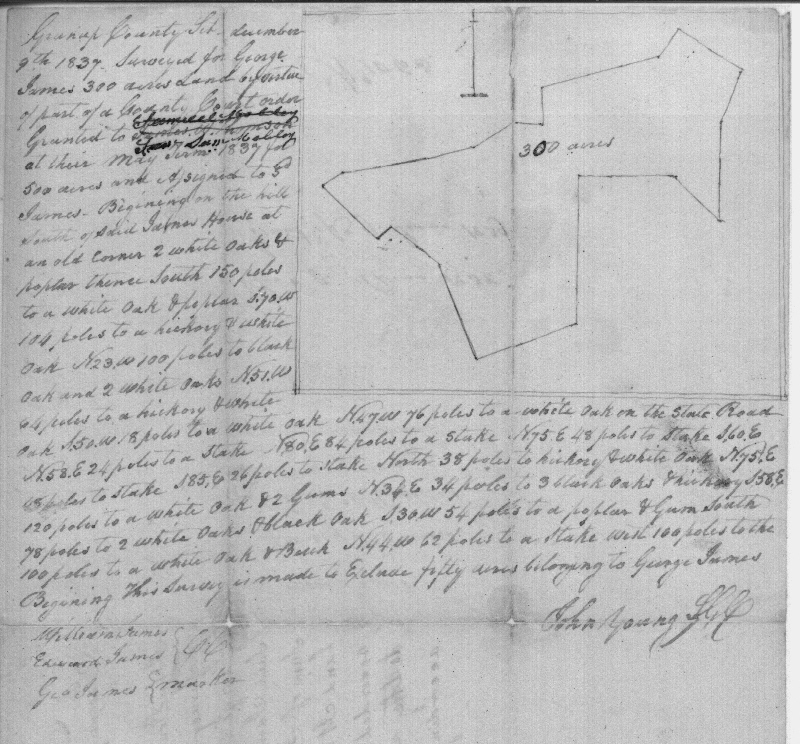 Greenup County Sct. december
9th 1837. Surveyed for George
James 300 acres Land by virtue
of part of a County Court order
Granted to Samuel Mobley
Sam Mobley
at their May Term 1837 for
500 acres and Assigned to Sd
James. Begining on the hill
South of Said James House at
an old Corner 2 white Oaks &
poplar thence South 150 poles
to a white Oak & poplar S.70.W
104 poles to a hickory & white
Oak N23.W 100 poles to black
Oak and 2 white Oaks N.51.W
64 poles to a hickory & white
Oak S.50.W 18 poles to a white Oak N47.W 76 poles to a white Oak on the State Road
N.58.E 24 poles to a Stake N80.E 84 poles to a Stake N75.E 48 poles to Stake S60.E
poles to Stake S85.E 26 poles to Stake North 38 poles to hickory & white Oak N75.E
120 poles to a white Oak & 2 Gums N.36.E 34 poles to 3 black Oaks & hickory S58.E
78 poles to 2 white Oaks & black Oak S.30.W 54 poles to a poplar & Gum South
100 poles to a white Oak & Beech N.44.W 62 poles to a Stake West 100 poles to the
Begining This Survey is made to Exlude fifty acres belonging to George James
John Young
William James
Edward James } CC
Geo James } marker
300 acres